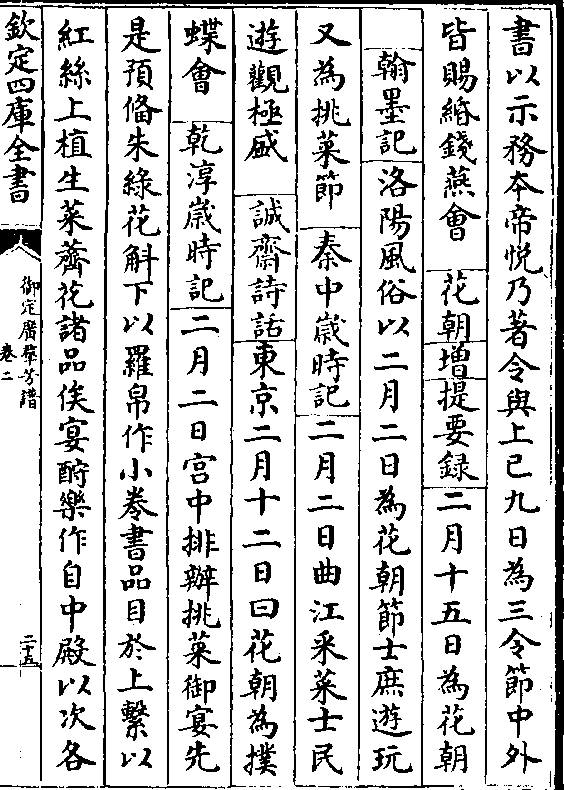 書以示務夲帝悦乃著令與上巳九日為三令節中外
皆賜緡錢燕會 花朝增提要録二月十五日為花朝
翰墨記洛陽風俗以二月二日為花朝節士庶遊玩
又為挑菜節 秦中嵗時記二月二日曲江采菜士民
遊觀極盛 誠齋詩話東京二月十二日曰花朝為撲
蝶會 乾淳嵗時記二月二日宫中排辦挑菜御宴先
是預俻朱綠花斛下以羅帛作小卷書品目於上繫以
紅絲上植生菜薺花諸品俟宴酧樂作自中殿以次各
欽定四庫全書
御定廣羣芳譜
卷二
二十五